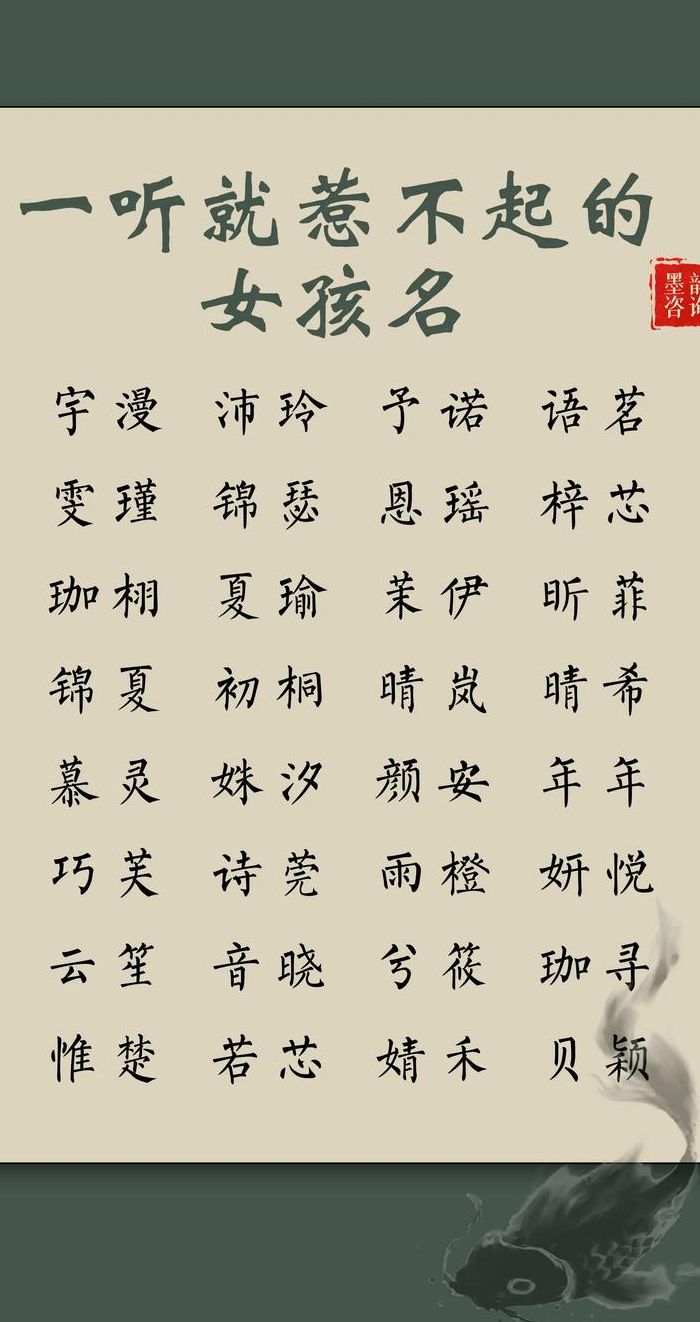 一听就惹不起的
女孩名
墨咨
宇漫 沛玲 予诺 语茗
雯瑾 锦瑟 恩瑶 梓芯
珈栩 夏瑜 茉伊 昕菲
锦夏 初桐 晴岚 晴希
慕灵 姝汐 颜安 年年
巧芙 诗莞 雨橙 妍悦
云笙 音晓 兮筱 珈寻
惟楚 若芯 婧禾 贝颖